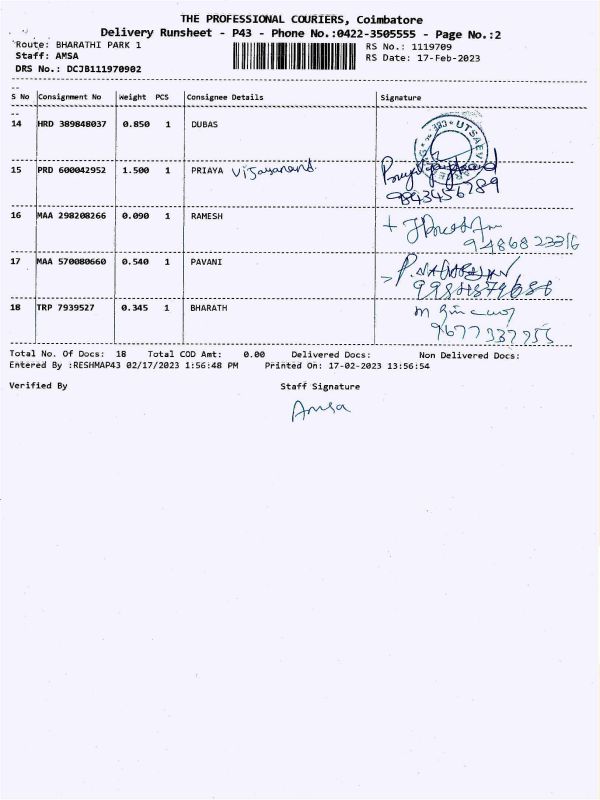 THE PROFESSIONAL COURIERS, Coimbatore
Delivery Runsheet - P43 - Phone No.:0422-3505555 - Page No.:2
Route: BHARATHI PARK 1 RS No.: 1119709
Staff: AMSA RS Date: 17-Feb-2023
DRS No.: DCJB111970902
S No Consignment No Weight PCS Consignee Details Signature
14 HRD 389848037 0.850 1 DUBAS
15 PRD 600042952 1.500 1 PRIAYA Vijayanand.
9843456789
16 MAA 298208266 0.090 1 RAMESH
9486823316
17 MAA 570080660 0.540 1 PAVANI
18 TRP 7939527 0.345 1 BHARATH
9677337955
Total No. Of Docs: 18 Total COD Amt: 0.00 Delivered Docs: Non Delivered Docs:
Entered By :RESHMAP43 02/17/2023 1:56:48 PM Printed On: 17-02-2023 13:56:54
Verified By Staff Signature
Amsa